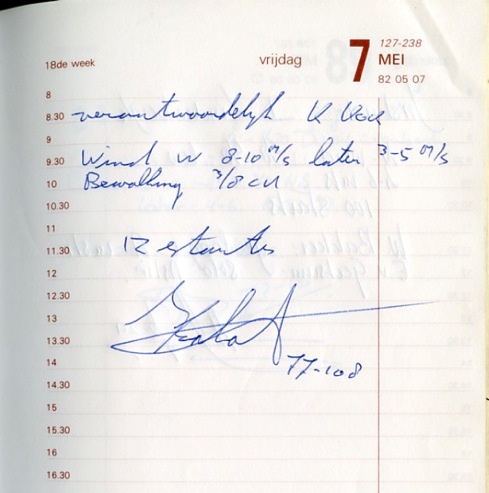 127-238
18de week vrijdag 7 MEI
82 05 07
8
8.30 verantwoordelijk K Kok
9
9.30 Wind W 8-10 m/s later 3-5 m/s
10 Bewolking 3/8 cu
10.30
11
11.30 12 starts
12
12.30
13
13.30
14 77-108
14.30
15
15.30
16
16.30